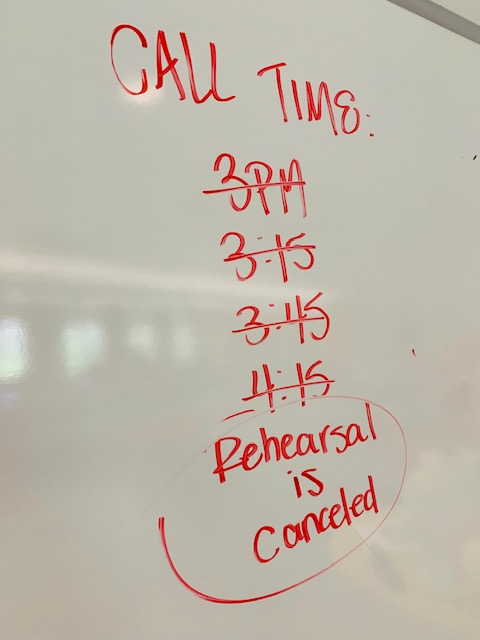 CALL TIME:
3PM
3:15
3:45
4:15
Rehearsal
is
Canceled